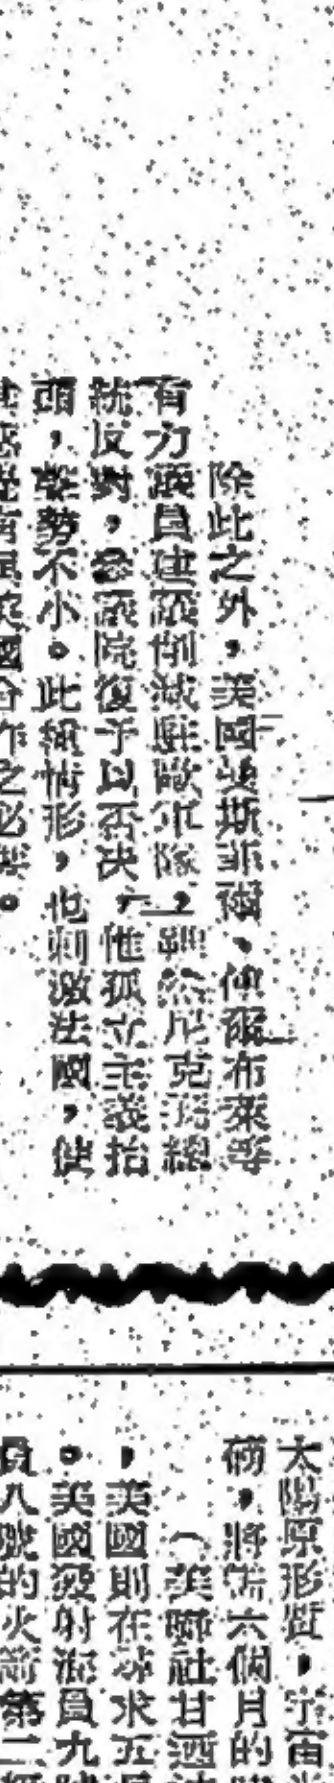 除此之外，美國曼斯菲爾、傅爾布萊等
有力議員建議削減駐歐軍隊，雖然尼克遜總
統反對，參議院復予以否決，惟孤立主義抬
頭，聲勢不小。此種情形，也刺激法國，使
國合作之必要。
太陽原形質，宇宙
磅，將需六個月的
（美聯社甘迺
，美國則在尋求五
。美國發射海員九號
員八號的火箭第二